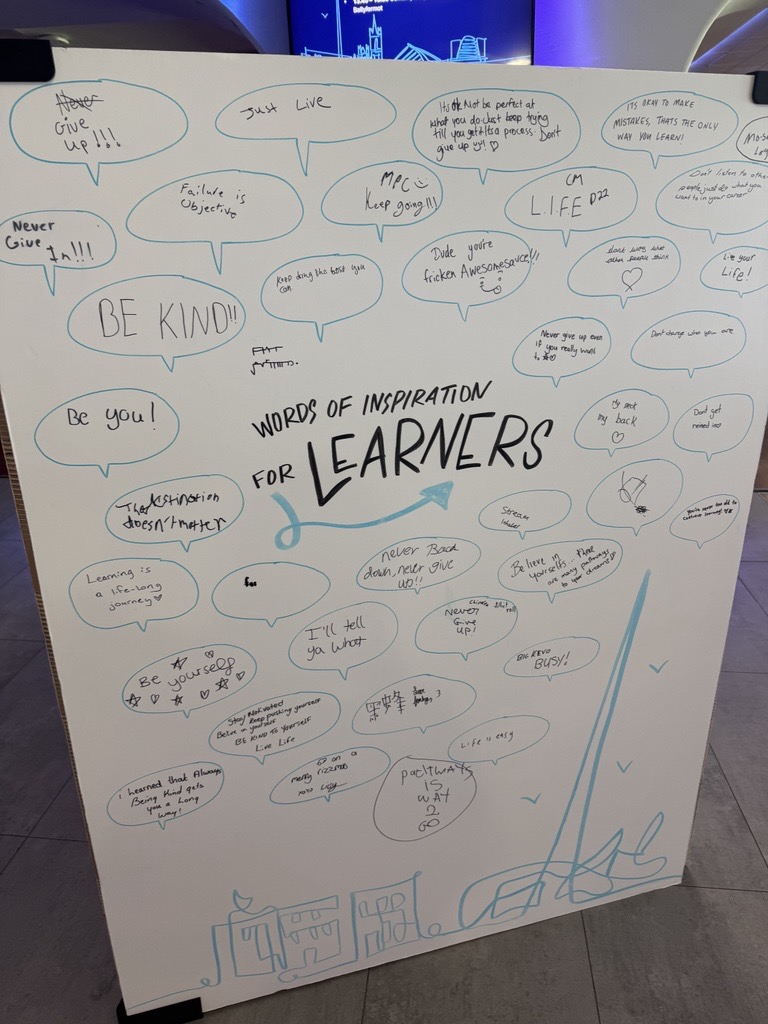 Ballyfermot
Never
Give
up!!!
Just Live
Its Ok Not be perfect at
what you do. Just keep trying
till you get it. Its a process. Don't
give up
ITS OKAY TO MAKE
MISTAKES, THATS THE ONLY
WAY YOU LEARN!
Never
Give In!!!
Failure is
Objective
MPC
Keep going!!!
CM
L.I.F.E D22
Don't listen to other
people, just do what you
want to in your career
BE KIND!!
Keep doing the best you
can
Dude you're
fricken Awesomesauce!!!
dont worry what
other people think
Live your
Life!
Never give up even
if you really want
to
Don't change who you are
Be you!
WORDS OF INSPIRATION
FOR LEARNERS
My neck
my back
Dont get
The destination
doesn't matter
Stream
you're never too old to
continue learning!
Learning is
a life-long
journey
never Back
down, never give
up!!
Believe in
yourselfs... there
are many pathways
to your dreams!
I'll tell
ya what
Never
Give
up!
Be yourself
BIG KEVO
BUSY!
Stay Motivated
keep pushing yourself
Belive in yourself
BE KIND TO YOURSELF
Live Life
Life is easy
i Learned that Always
Being Kind gets
you a Long
way!
GO on a
pathways
IS
WAY
2
GO